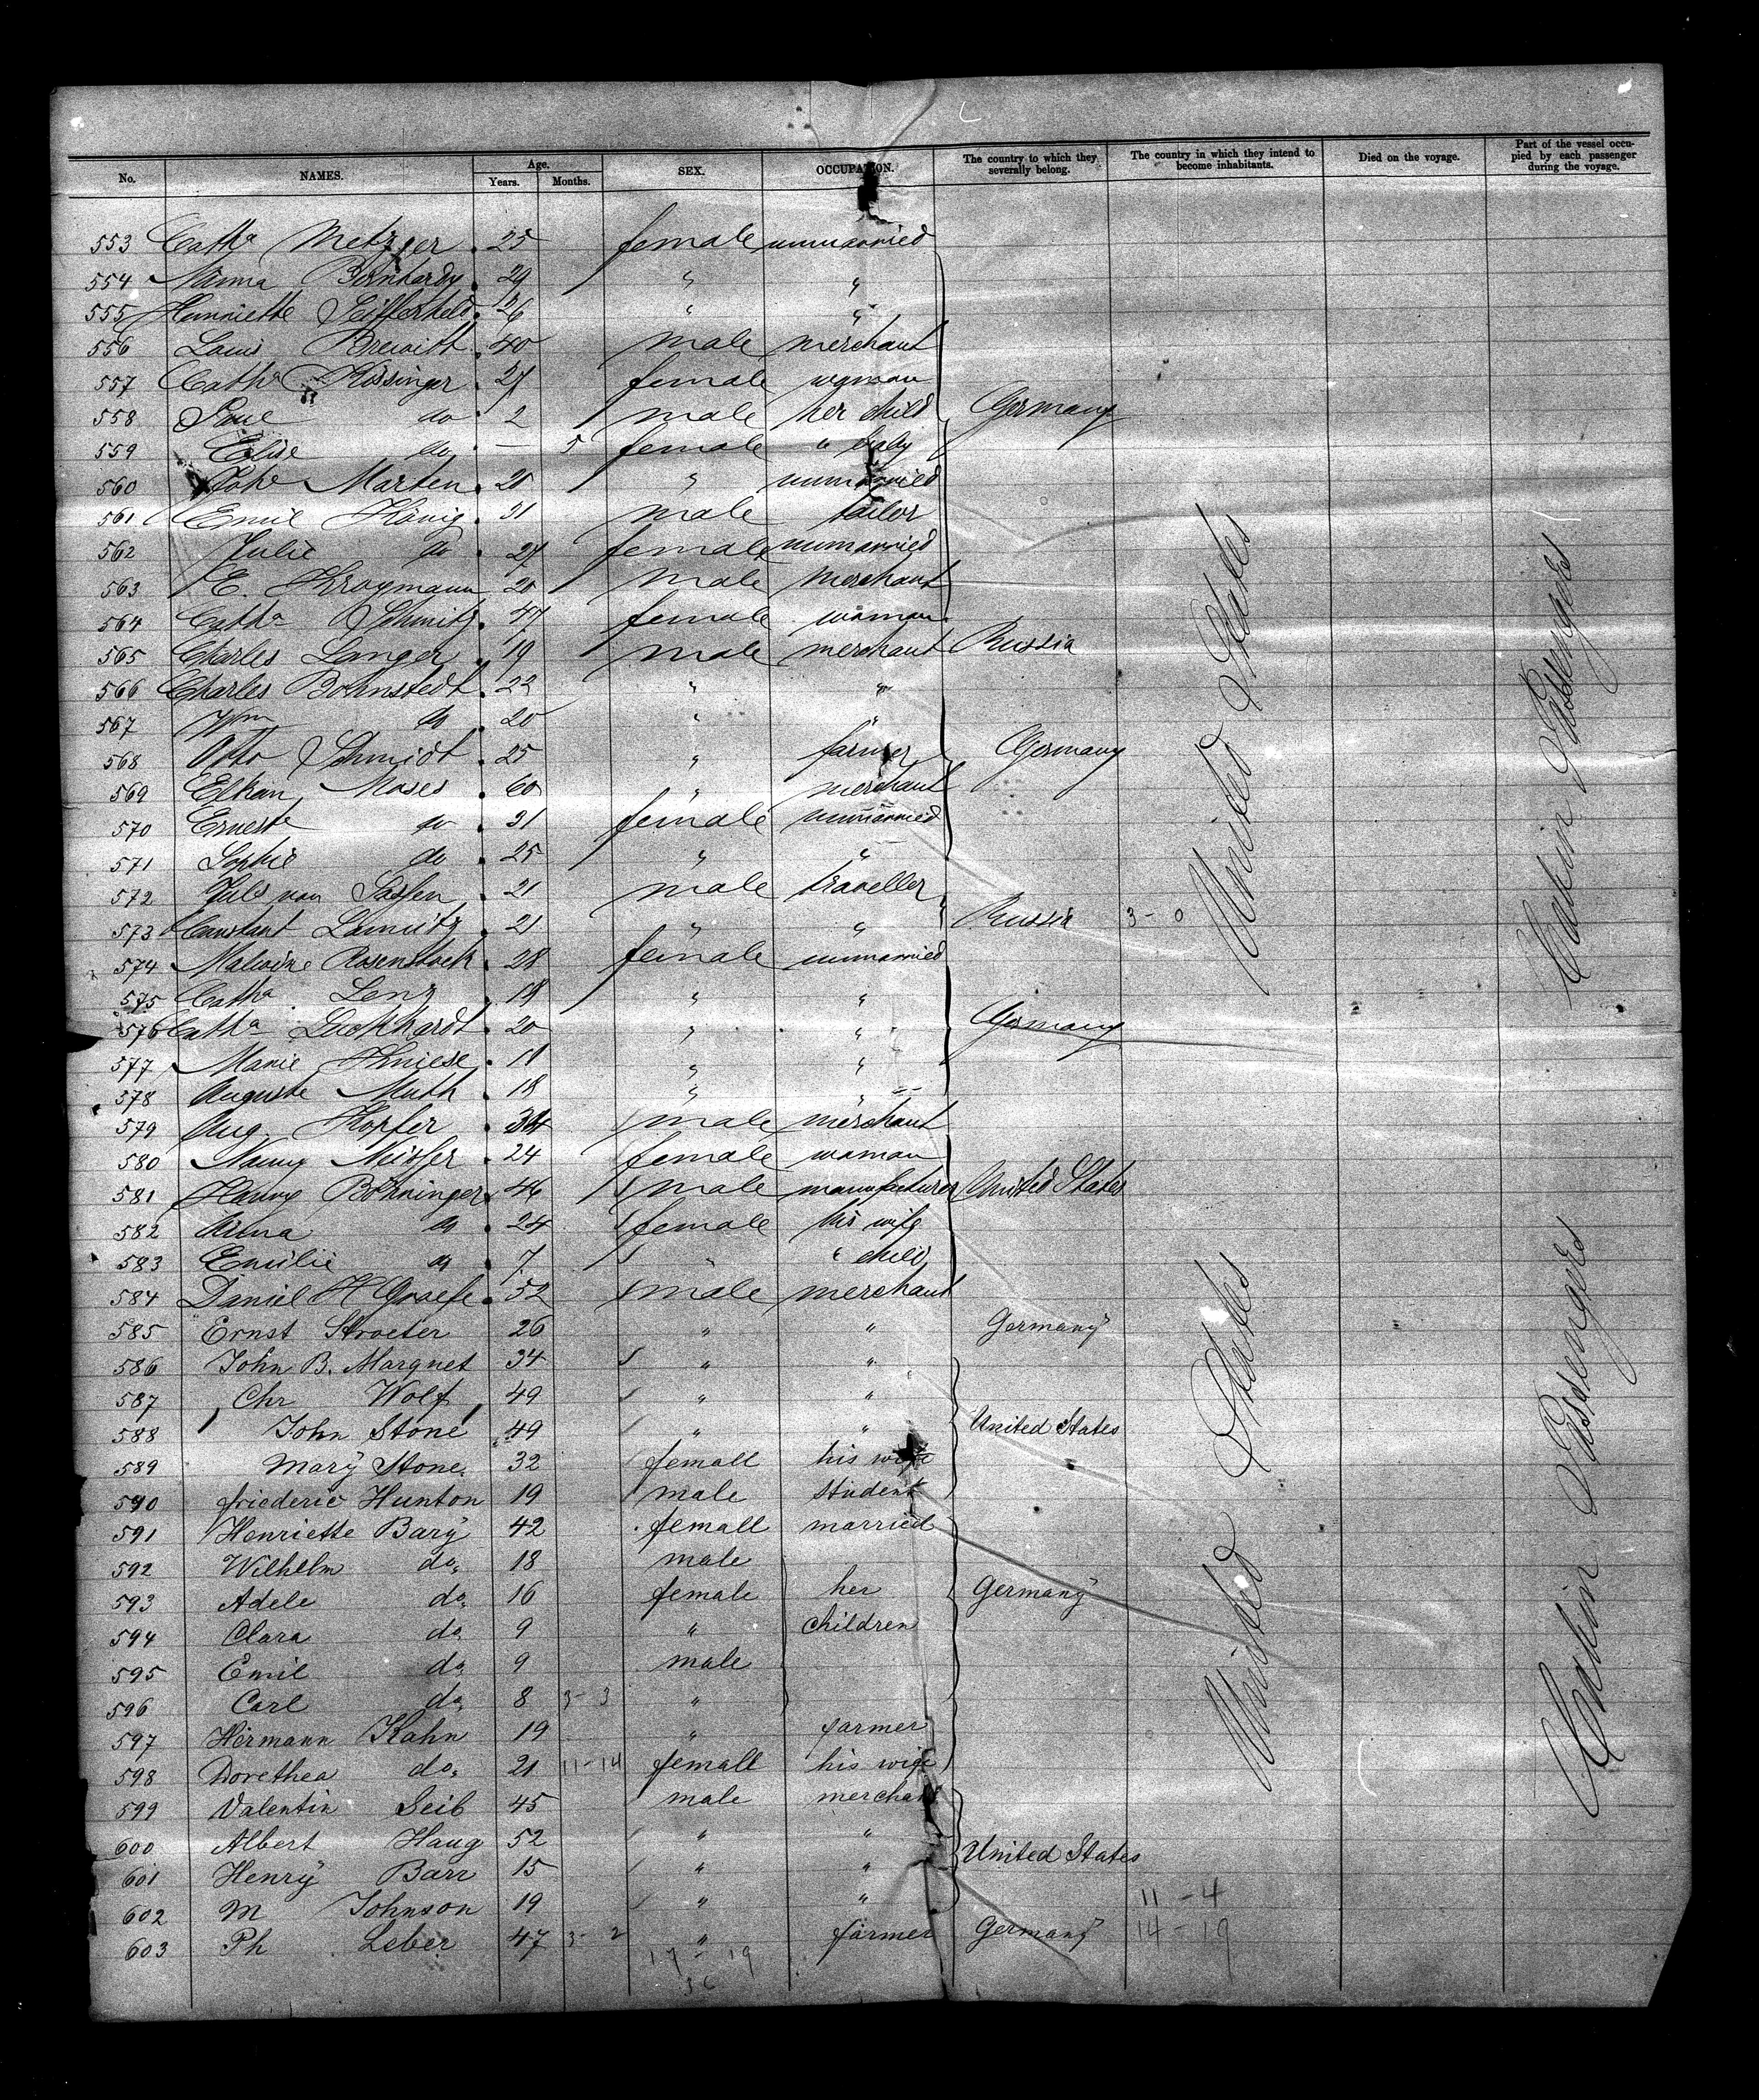 No. NAMES. Age. Years. Months. SEX. OCCUPATION. The country to which they severally belong. The country in which they intend to become inhabitants. Died on the voyage. Part of the vessel occupied by each passenger during the voyage.
553 Catha Metzger 25 female unmarried
554 Nanna Bernhardy 29 " "
555 Henriette Seifferheld 26 " "
556 Louis Brewitt 40 male merchant
557 Catha Kissinger 27 female woman
558 do 2 male her child Germany
559 Elise do — 5 female " baby
560 Marten 20 " unmarried
561 Emil König 31 male tailor
562 Julie do 27 female unmarried
563 E. Kroymann 20 male merchant
564 Catha Schmitz 47 female woman
565 Charles Langer 19 male merchant Russia
566 Charles Bohnstedt 22 " "
567 Wm do 20 " "
568 Otto Schmidt 25 " farmer Germany
569 Elkan Moses 60 " merchant
570 Erneste do 31 female unmarried
571 Sophie do 25 " "
572 Juls von Sassen 21 male traveller
573 Constant 21 " " Russia 3 - 0
574 Malwine Rosenstock 28 female unmarried
575 Catha Lenz 18 " "
576 Catha Luckhardt 20 " " Germany
577 Marie Kniese 18 " "
578 Auguste Muth 18 " "
579 Aug. Hopfer 34 male merchant
580 Nanny Meisser 24 female woman
581 Henry Böhninger 46 male manufacturer United States
582 Anna do 24 female his wife
583 Emilie do 7 " " child
584 Daniel H Graefe 52 male merchant
585 Ernst Stroeter 26 " " Germany
586 John B. Margnet 34 " "
587 Chr Wolf 49 " "
588 John Stone 49 " " United States
589 Mary Stone 32 female his wife
590 friederic Hunton 19 male student
591 Henriette Bary 42 female married
592 Wilhelm do 18 male
593 Adele do 16 female her Germany
594 Clara do 9 " children
595 Emil do 9 male
596 Carl do 8 3- 3 "
597 Hermann Kahn 19 " farmer
598 Dorethea do 21 11-14 female his wife
599 Valentin Seib 45 male merchant
600 Albert Haug 52 " "
601 Henry Barr 15 " " United States
602 M Johnson 19 " " 11 - 4
603 Ph Leber 47 3- 2 " farmer Germany 14 - 19
17 - 19
36
United States
United States
Cabin Passengers
Cabin Passengers